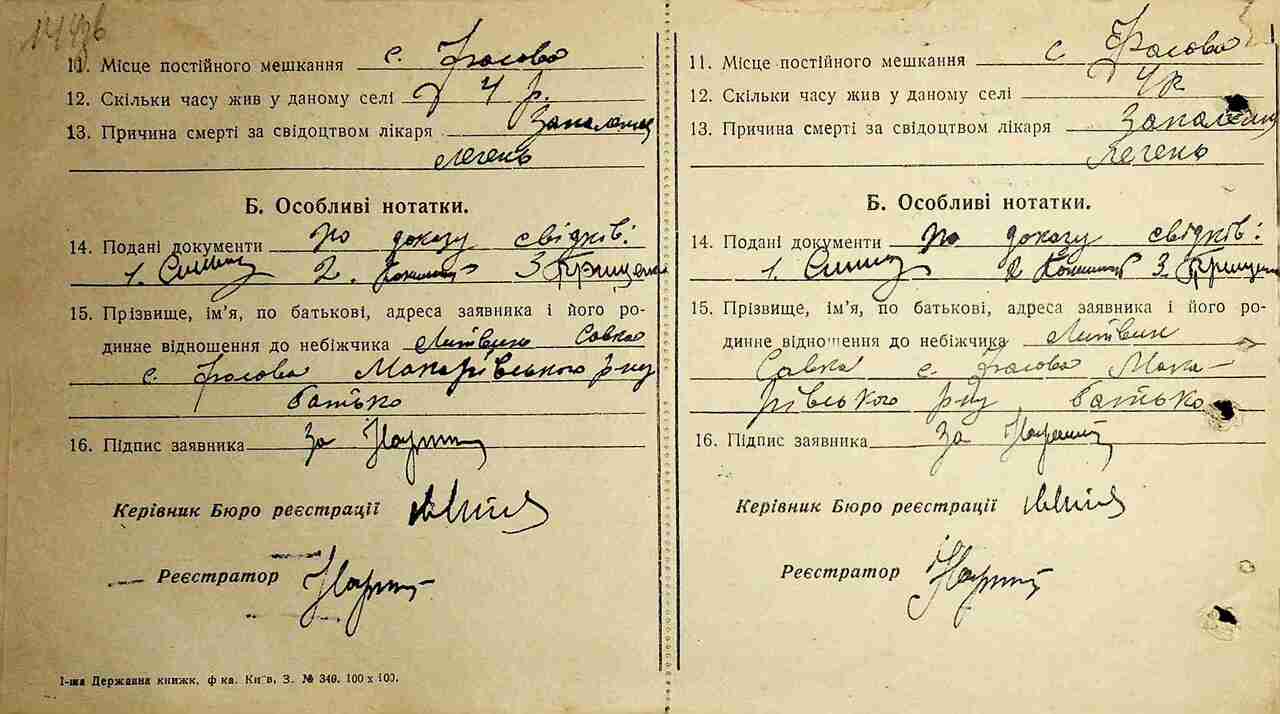 11. Місце постійного мешкання с. Фасова
12. Скільки часу жив у даному селі 4 р.
13. Причина смерті за свідоцтвом лікаря Запалення
легень
Б. Особливі нотатки.
14. Подані документи по доказу свідків:
1. 2. 3.
15. Прізвище, ім’я, по батькові, адреса заявника і його ро-
динне відношення до небіжчика Литвин Савка
с. Фасова Макарівського р-ну
батько
16. Підпис заявника За
Керівник Бюро реєстрації
Реєстратор
1-ша Державна книжк. ф-ка. Київ, З. № 340. 100 х 100.
11. Місце постійного мешкання с Фасова
12. Скільки часу жив у даному селі 4 р
13. Причина смерті за свідоцтвом лікаря Запалення
легень
Б. Особливі нотатки.
14. Подані документи по доказу свідків:
1. 2. 3.
15. Прізвище, ім’я, по батькові, адреса заявника і його ро-
динне відношення до небіжчика Литвин
Савка с. Фасова Мака-
рівського р-ну батько
16. Підпис заявника За
Керівник Бюро реєстрації
Реєстратор